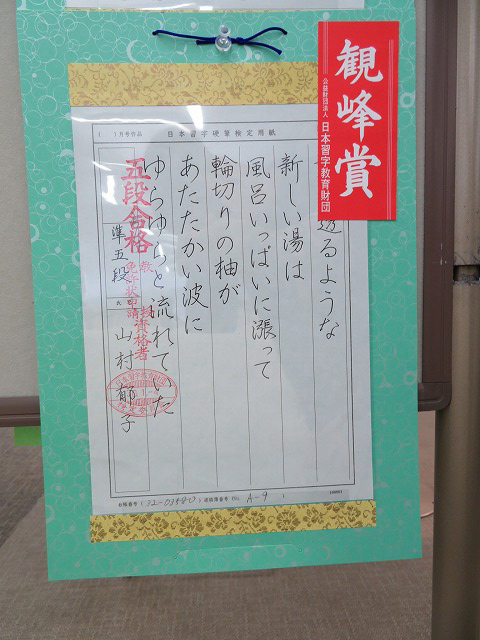 観峰賞
公益財団法人 日本習字教育財団
( )月号作品 日本習字硬筆検定用紙
透るような
新しい湯は
風呂いっぱいに漲って
輪切りの柚が
あたたかい波に
ゆらゆらと流れていた
五段合格
教授
免許状申請資格者
準五段
氏名
山村郁子
A-9